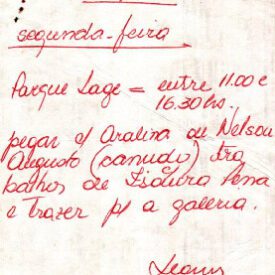 segunda-feira
Parque Lage = entre 11.00 e
16.30 hs.
pegar c/ Aralina de Nelson
Augusto (canudo) tra
balhos de Pena
e trazer p/ a galeria.